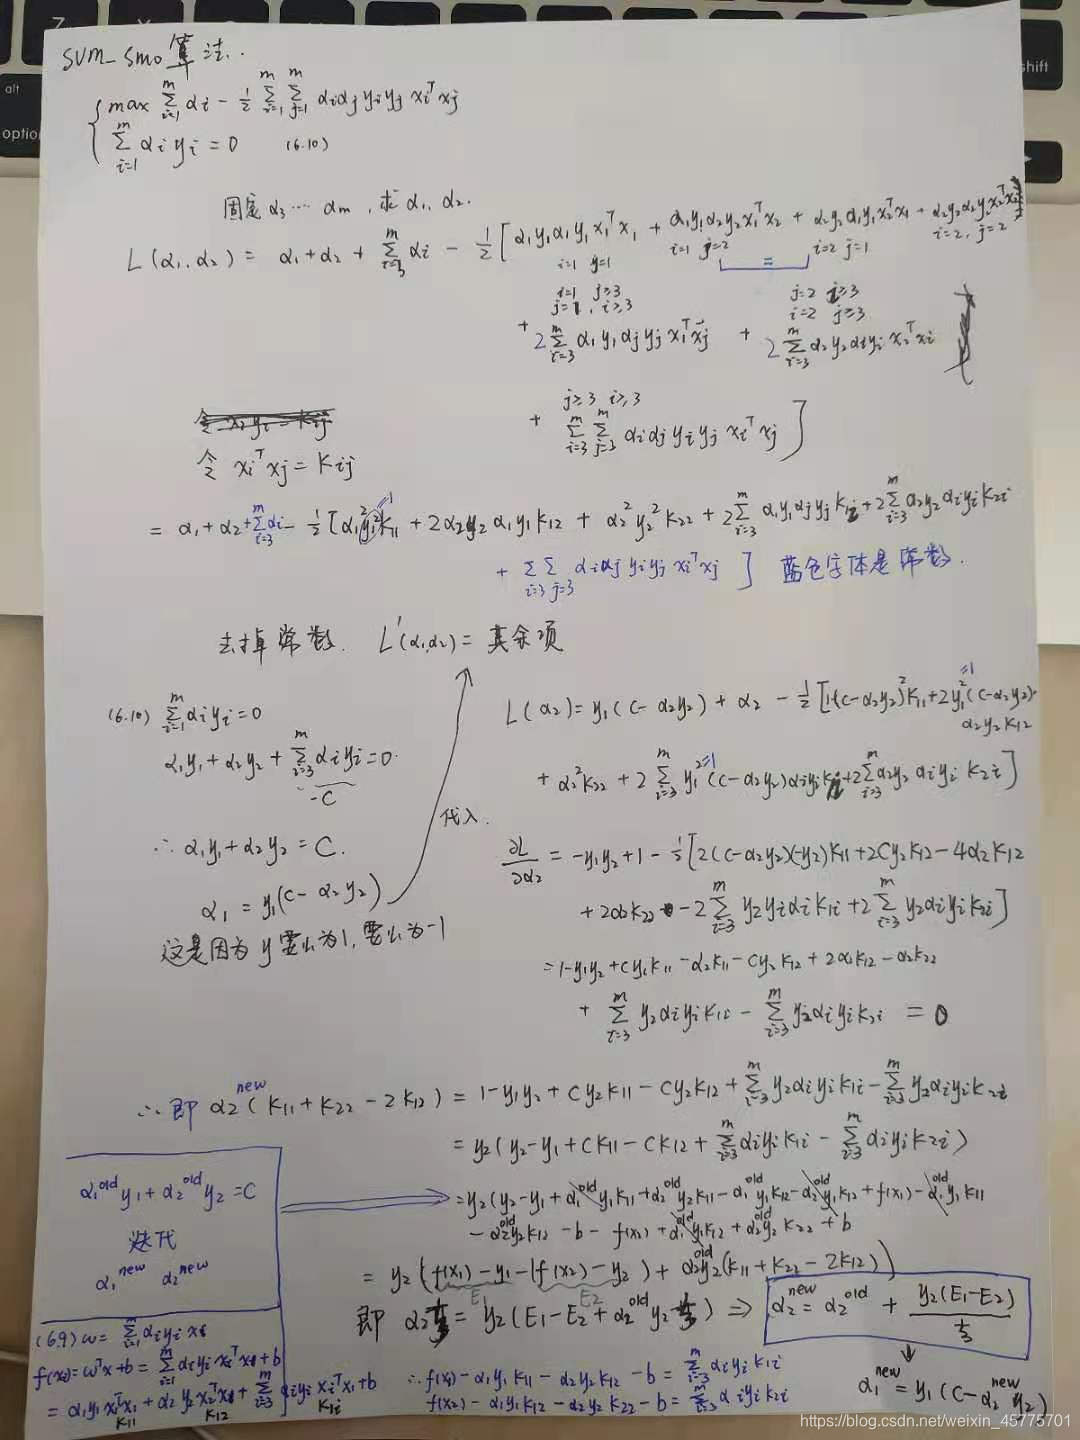 SVM_SMO算法.
max Σ_{i=1}^{m} αi - 1/2 Σ_{i=1}^{m} Σ_{j=1}^{m} αiαj yi yj xi^T xj
Σ_{i=1}^{m} αi yi = 0 (6.10)
固定 α3 ···· αm , 求 α1, α2.
L(α1, α2) = α1+α2 + Σ_{i=3}^{m} αi - 1/2 [ α1y1α1y1 x1^T x1 + α1y1α2y2 x1^T x2 + α2y2α1y1 x2^T x1 + α2y2α2y2 x2^T x2
i=1 j=1 i=1 j=2 = i=2 j=1 i=2, j=2
i=1 j≥3 j=2 i≥3
j=1, i≥3 i=2 j≥3
+ 2Σ_{i=3}^{m} α1 y1 αj yj x1^T xj + 2Σ_{i=3}^{m} α2 y2 αi yi x2^T xi
j≥3 i≥3
+ Σ_{i=3}^{m} Σ_{j=3}^{m} αi αj yi yj xi^T xj ]
令 xi^T xj = Kij
= α1 + α2 + Σ_{i=3}^{m} αi - 1/2 [α1^2 y1^2 K11 + 2α2y2 α1y1 K12 + α2^2 y2^2 K22 + 2Σ_{i=3}^{m} α1y1αjyj K1i + 2Σ_{i=3}^{m} α2y2 αiyi K2i
=1
+ Σ_{i=3} Σ_{j=3} αiαj yi yj xi^T xj ] 蓝色字体是常数.
去掉常数. L'(α1,α2) = 其余项
(6.10) Σ_{i=1}^{m} αi yi = 0
α1y1 + α2y2 + Σ_{i=3}^{m} αi yi = 0.
-C
∴ α1y1 + α2y2 = C.
α1 = y1(C - α2y2)
代入.
这是因为 y 要么为1, 要么为-1
L(α2) = y1(C - α2y2) + α2 - 1/2 [1·(C-α2y2)^2 K11 + 2y1^2 (C-α2y2)·
=1
α2y2 K12
+ α2^2 K22 + 2 Σ_{i=3}^{m} y1^2 (C-α2y2)αiyi K1i + 2Σ_{i=3}^{m} α2y2 αiyi K2i ]
=1
∂L/∂α2 = -y1y2 + 1 - 1/2 [2(C-α2y2)(-y2)K11 + 2Cy2K12 - 4α2K12
+ 2α2K22 - 2Σ_{i=3}^{m} y2yiαiK1i + 2Σ_{i=3}^{m} y2αiyiK2i]
= 1-y1y2 + Cy2K11 - α2K11 - Cy2K12 + 2α2K12 - α2K22
+ Σ_{i=3}^{m} y2αiyiK1i - Σ_{i=3}^{m} y2αiyiK2i = 0
∴ 即 α2^new (K11 + K22 - 2K12) = 1-y1y2 + Cy2K11 - Cy2K12 + Σ_{i=3}^{m} y2αiyiK1i - Σ_{i=3}^{m} y2αiyiK2i
= y2(y2 - y1 + CK11 - CK12 + Σ_{i=3}^{m} αiyiK1i - Σ_{i=3}^{m} αiyiK2i)
α1^old y1 + α2^old y2 = C
迭代
α1^new α2^new
= y2(y2 - y1 + α1^old y1K11 + α2^old y2K11 - α1^old y1K12 - α2^old y2K12 + f(x1) - α1^old y1K11
- α2^old y2K12 - b - f(x2) + α1^old y1K12 + α2^old y2 K22 + b
= y2(f(x1) - y1 - (f(x2) - y2) + α2^old y2(K11 + K22 - 2K12))
E1 E2
即 α2 = y2(E1 - E2 + α2^old y2 ) ⇒ α2^new = α2^old + y2(E1-E2)/
α1^new = y1(C - α2^new y2)
(6.9) ω = Σ_{i=1}^{m} αi yi xi
f(x1) = ω^T x + b = Σ_{i=1}^{m} αiyi xi^T x1 + b
= α1y1 x1^T x1 + α2 y2 x2^T x1 + Σ_{i=3}^{m} αiyi xi^T x1 + b
K11 K12 K1i
∴ f(x1) - α1y1 K11 - α2y2 K12 - b = Σ_{i=3}^{m} αiyi K1i
f(x2) - α1y1K12 - α2y2 K22 - b = Σ_{i=3}^{m} αiyi K2i
https://blog.csdn.net/weixin_45775701
alt
option
shift